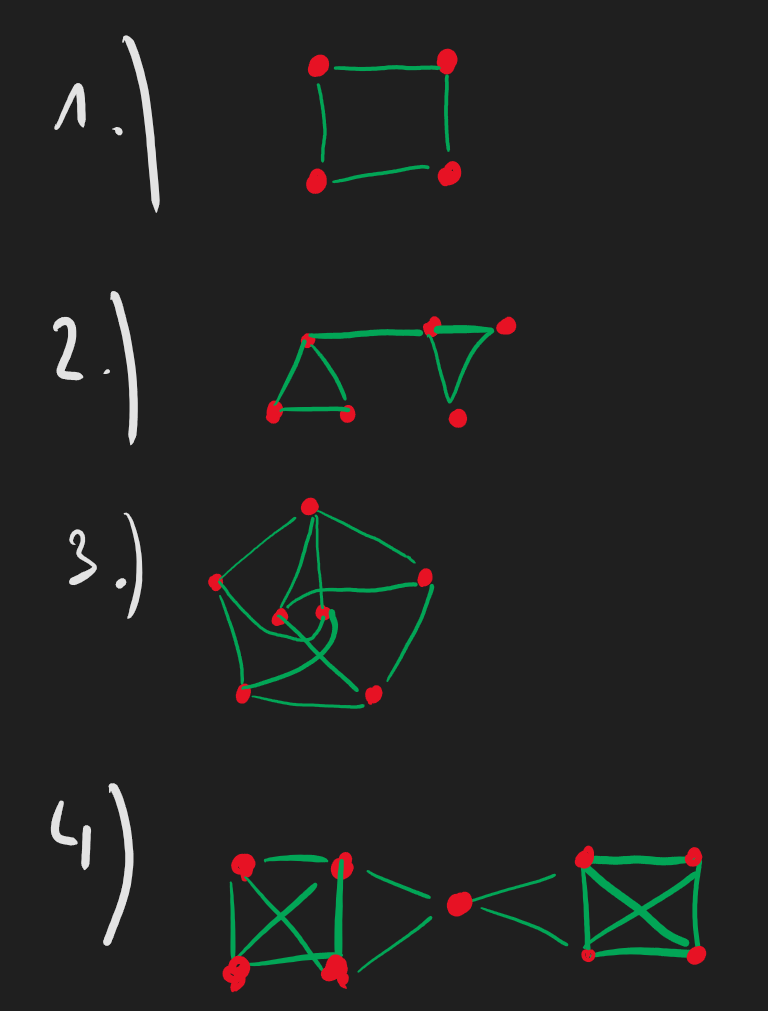 1.)
2.)
3.)
4)